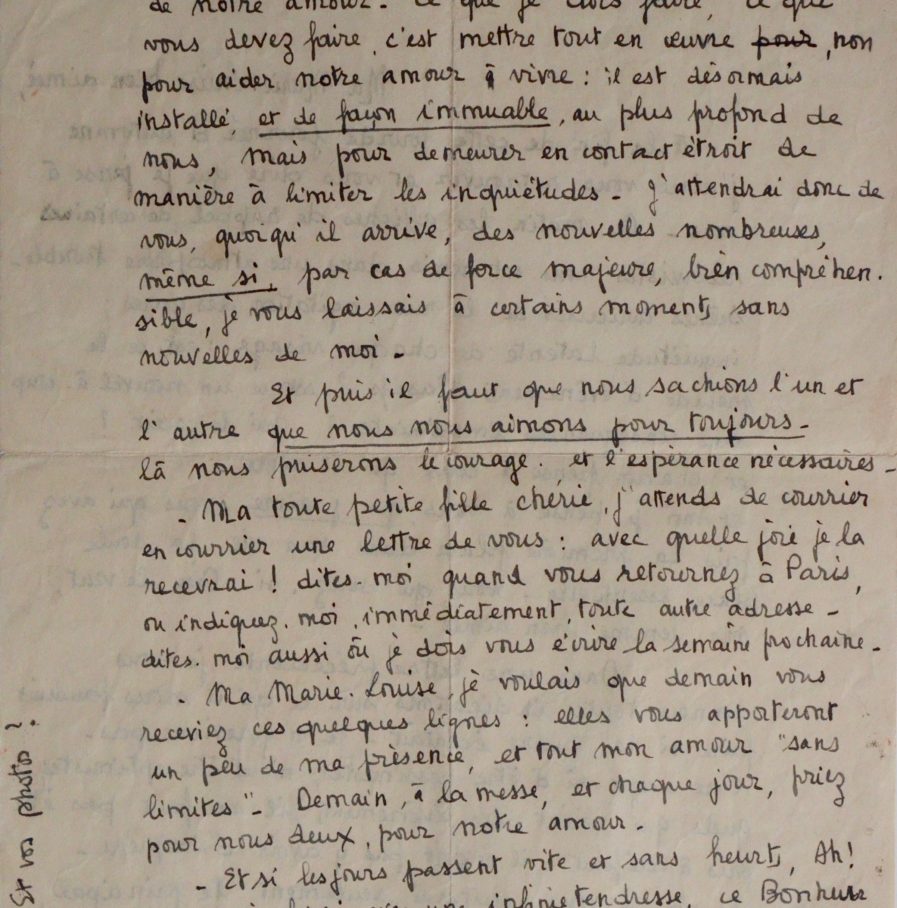 de notre amour - ce que je dois faire, ce que
vous devez faire, c'est mettre tout en œuvre pour, non
pour aider notre amour à vivre : il est désormais
installé, et de façon immuable, au plus profond de
nous, mais pour demeurer en contact étroit de
manière à limiter les inquiétudes - J'attendrai donc de
vous, quoiqu'il arrive, des nouvelles nombreuses,
même si, par cas de force majeure, bien compréhen-
sible, je vous laissais à certains moments sans
nouvelles de moi -
Et puis il faut que nous sachions l'un et
l'autre que nous nous aimons pour toujours -
là nous puiserons le courage. et l'espérance nécessaires -
- Ma toute petite fille chérie, j'attends de courrier
en courrier une lettre de vous : avec quelle joie je la
recevrai ! dites-moi quand vous retournez à Paris,
ou indiquez-moi, immédiatement, toute autre adresse -
dites-moi aussi où je dois vous écrire la semaine prochaine -
- Ma Marie-Louise, je voulais que demain vous
receviez ces quelques lignes : elles vous apporteront
un peu de ma présence, et tout mon amour "sans
limites" - Demain, à la messe, et chaque jour, priez
pour nous deux, pour notre amour -
- Et si les jours passent vite et sans heurts, Ah!
une infinie tendresse, ce Bonheur
Et vos photos ?